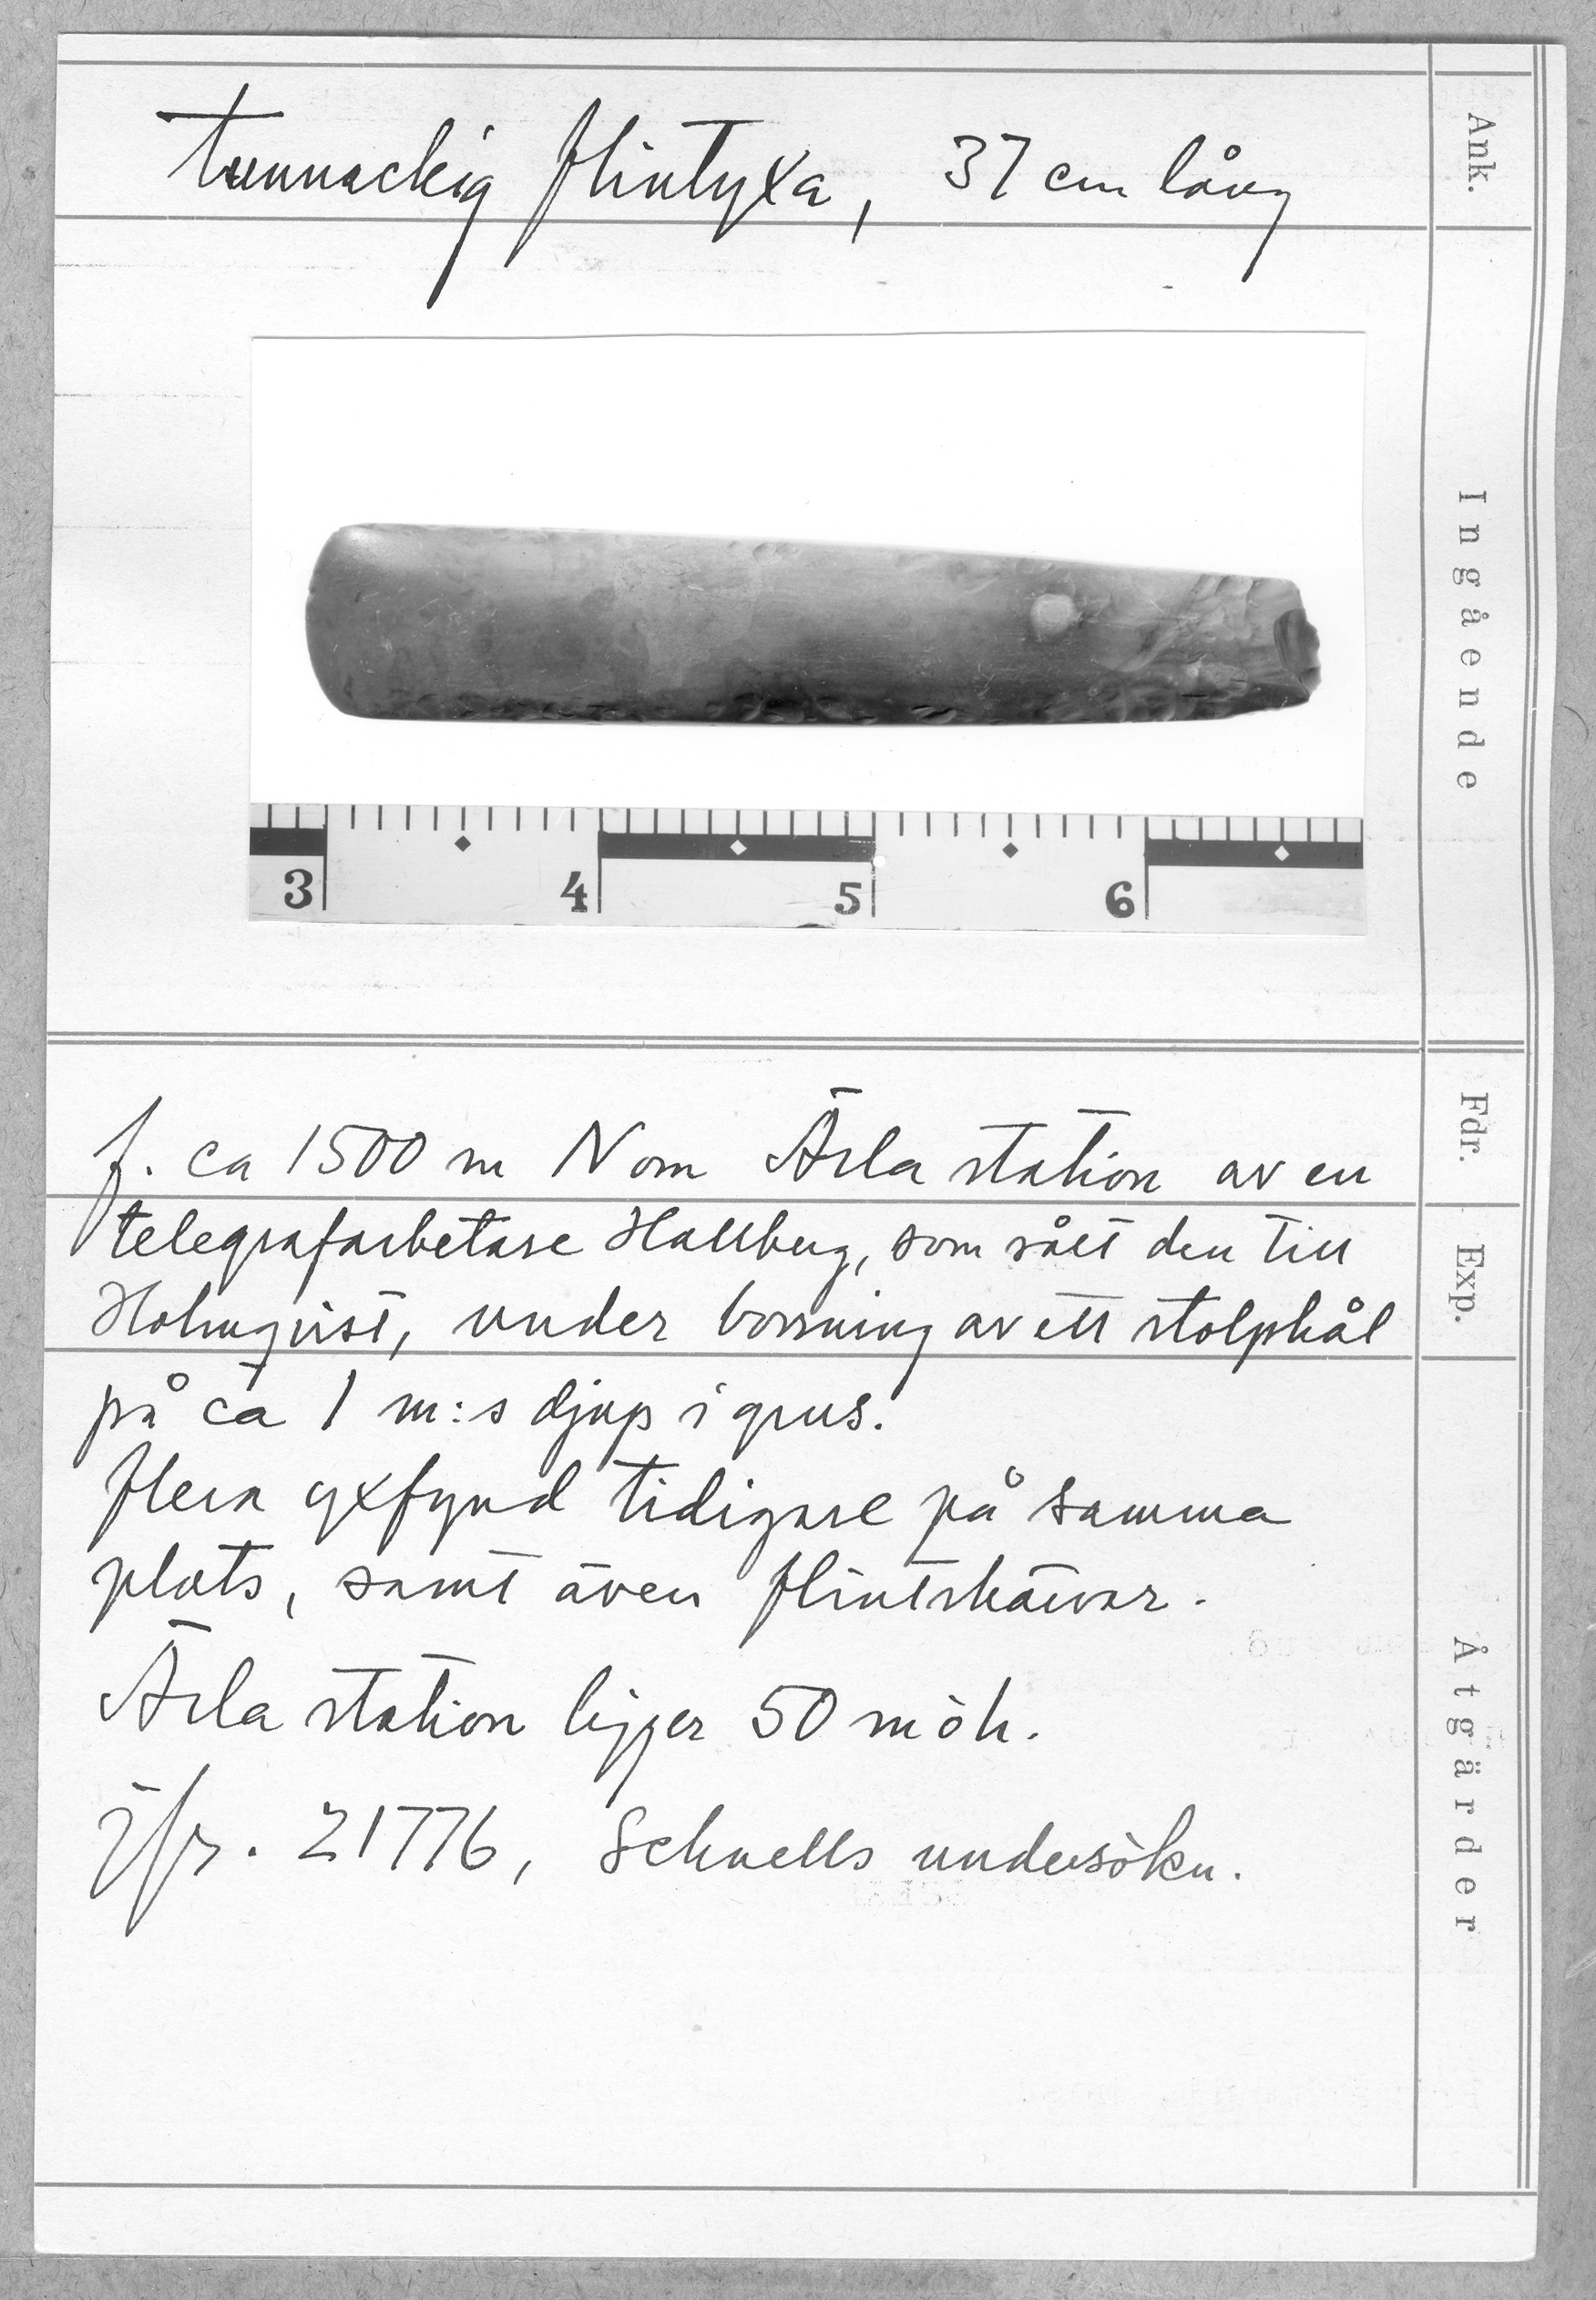 tunnackig flintyxa, 37 cm lång
3 4 5 6
f. ca 1500 m N om Ärla station av en
telegrafarbetare Hallberg, som sålt den till
Holmqvist, under borrning av ett stolphål
på ca 1 m:s djup i grus.
flera yxfynd tidigare på samma
plats, samt även flintskärvor.
Ärla station ligger 50 m öh.
Jfr. 21776, Schnells undersökn.
Ank.
Ingående
Fdr.
Exp.
Åtgärder